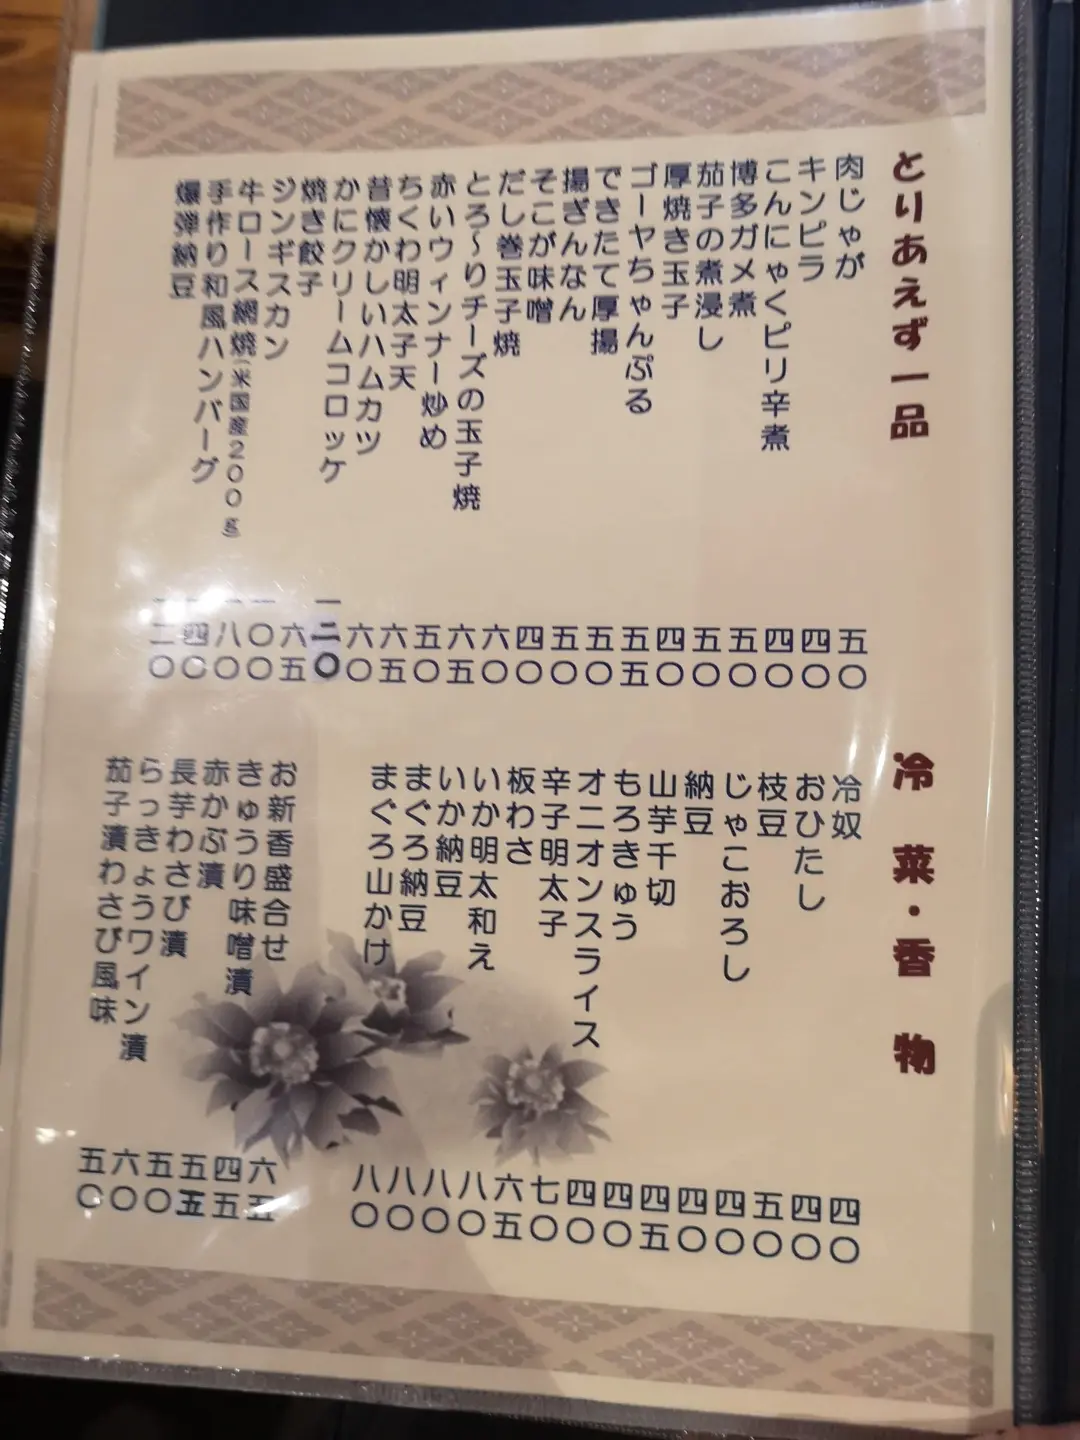 とりあえず一品
肉じゃが 五〇
キンピラ 四〇
こんにゃくピリ辛煮 四〇
博多ガメ煮 五〇
茄子の煮浸し 五〇
厚焼き玉子 四〇
ゴーヤちゃんぷる 五五
できたて厚揚 五〇
揚ぎんなん 五〇
そこが味噌 四〇
だし巻玉子焼 六〇
とろ〜りチーズの玉子焼 六五
赤いウィンナー炒め 五〇
ちくわ明太子天 六五
昔懐かしいハムカツ 六〇
かにクリームコロッケ 一二〇
焼き餃子 六五
ジンギスカン 一〇〇
牛ロース網焼(米国産200g) 一八〇
手作り和風ハンバーグ 一四〇
爆弾納豆 一二〇
冷菜・香物
冷奴 四〇
おひたし 四〇
枝豆 五〇
じゃこおろし 四〇
納豆 四〇
山芋千切 四五
もろきゅう 四〇
オニオンスライス 四〇
辛子明太子 七〇
板わさ 六五
いか明太和え 八〇
いか納豆 八〇
まぐろ納豆 八〇
まぐろ山かけ 八〇
お新香盛合せ 六五
きゅうり味噌漬 四五
赤かぶ漬 五五
長芋わさび漬 五〇
らっきょうワイン漬 六〇
茄子漬わさび風味 五〇